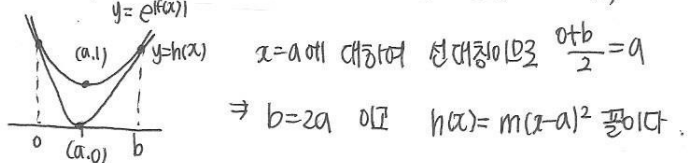 y=e^{|f(x)|}
(a,1)
y=h(x)
0
(a,0)
b
x=a에 대하여 선대칭이므로 \frac{0+b}{2}=a
⇒ b=2a 이고 h(x)=m(x-a)² 꼴이다.